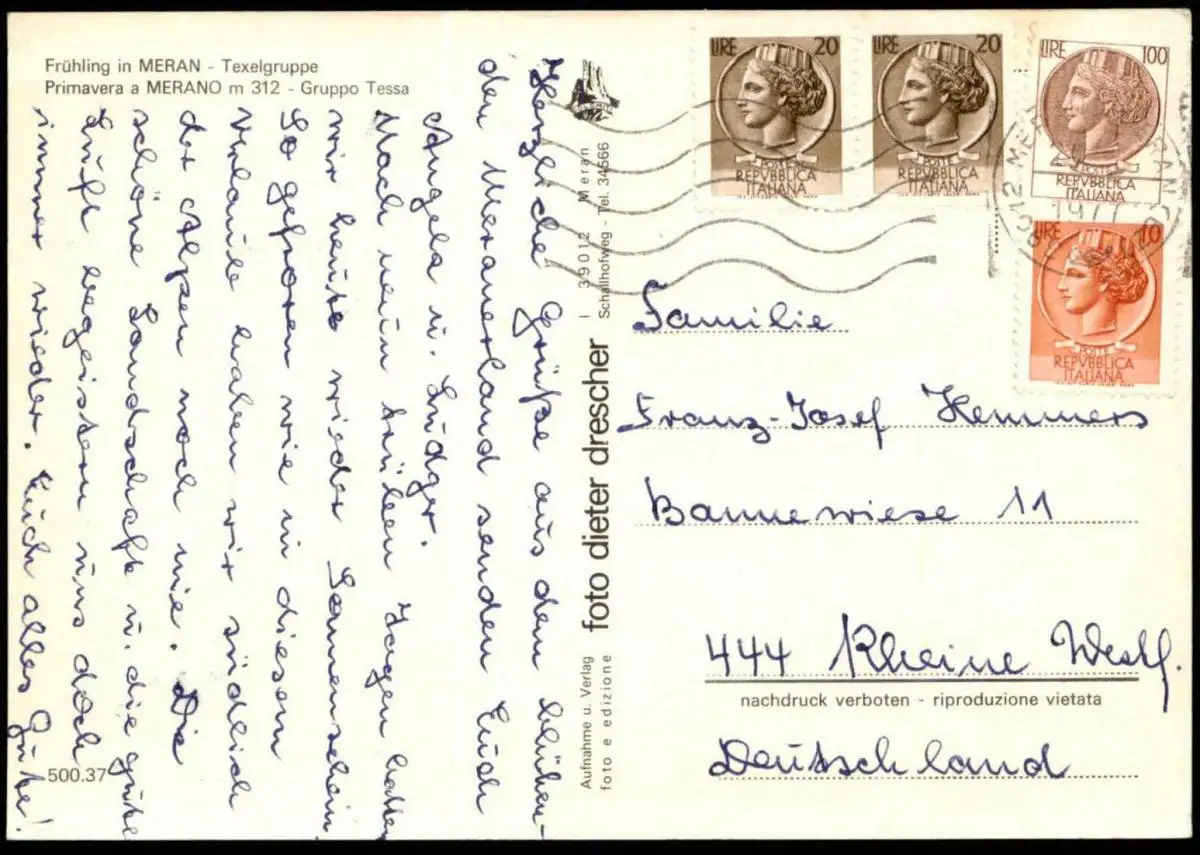 Frühling in MERAN - Texelgruppe
Primavera a MERANO m 312 - Gruppo Tessa
Herzliche Grüße aus dem blühen-
den Meranerland senden Euch
Angela u. Ludger.
Nach neun trüben Tagen hatten
wir heute wieder Sonnenschein
So gefroren wie in diesem
Urlaub haben wir südlich
der Alpen noch nie. Die
schöne Landschaft u. die gute
Luft begeistern uns doch
immer wieder. Euch alles Gute!
500.37
Aufnahme u. Verlag
foto e edizione
foto dieter drescher
I 39012 Meran
Schallhofweg - Tel. 34566
LIRE 20
POSTE
REPVBBLICA
ITALIANA
LIRE 20
POSTE
REPVBBLICA
ITALIANA
LIRE 100
POSTE
REPVBBLICA
ITALIANA
LIRE 10
POSTE
REPVBBLICA
ITALIANA
1977
Familie
Franz-Josef Hemmers
Bannewiese 11
444 Rheine Westf.
nachdruck verboten - riproduzione vietata
Deutschland